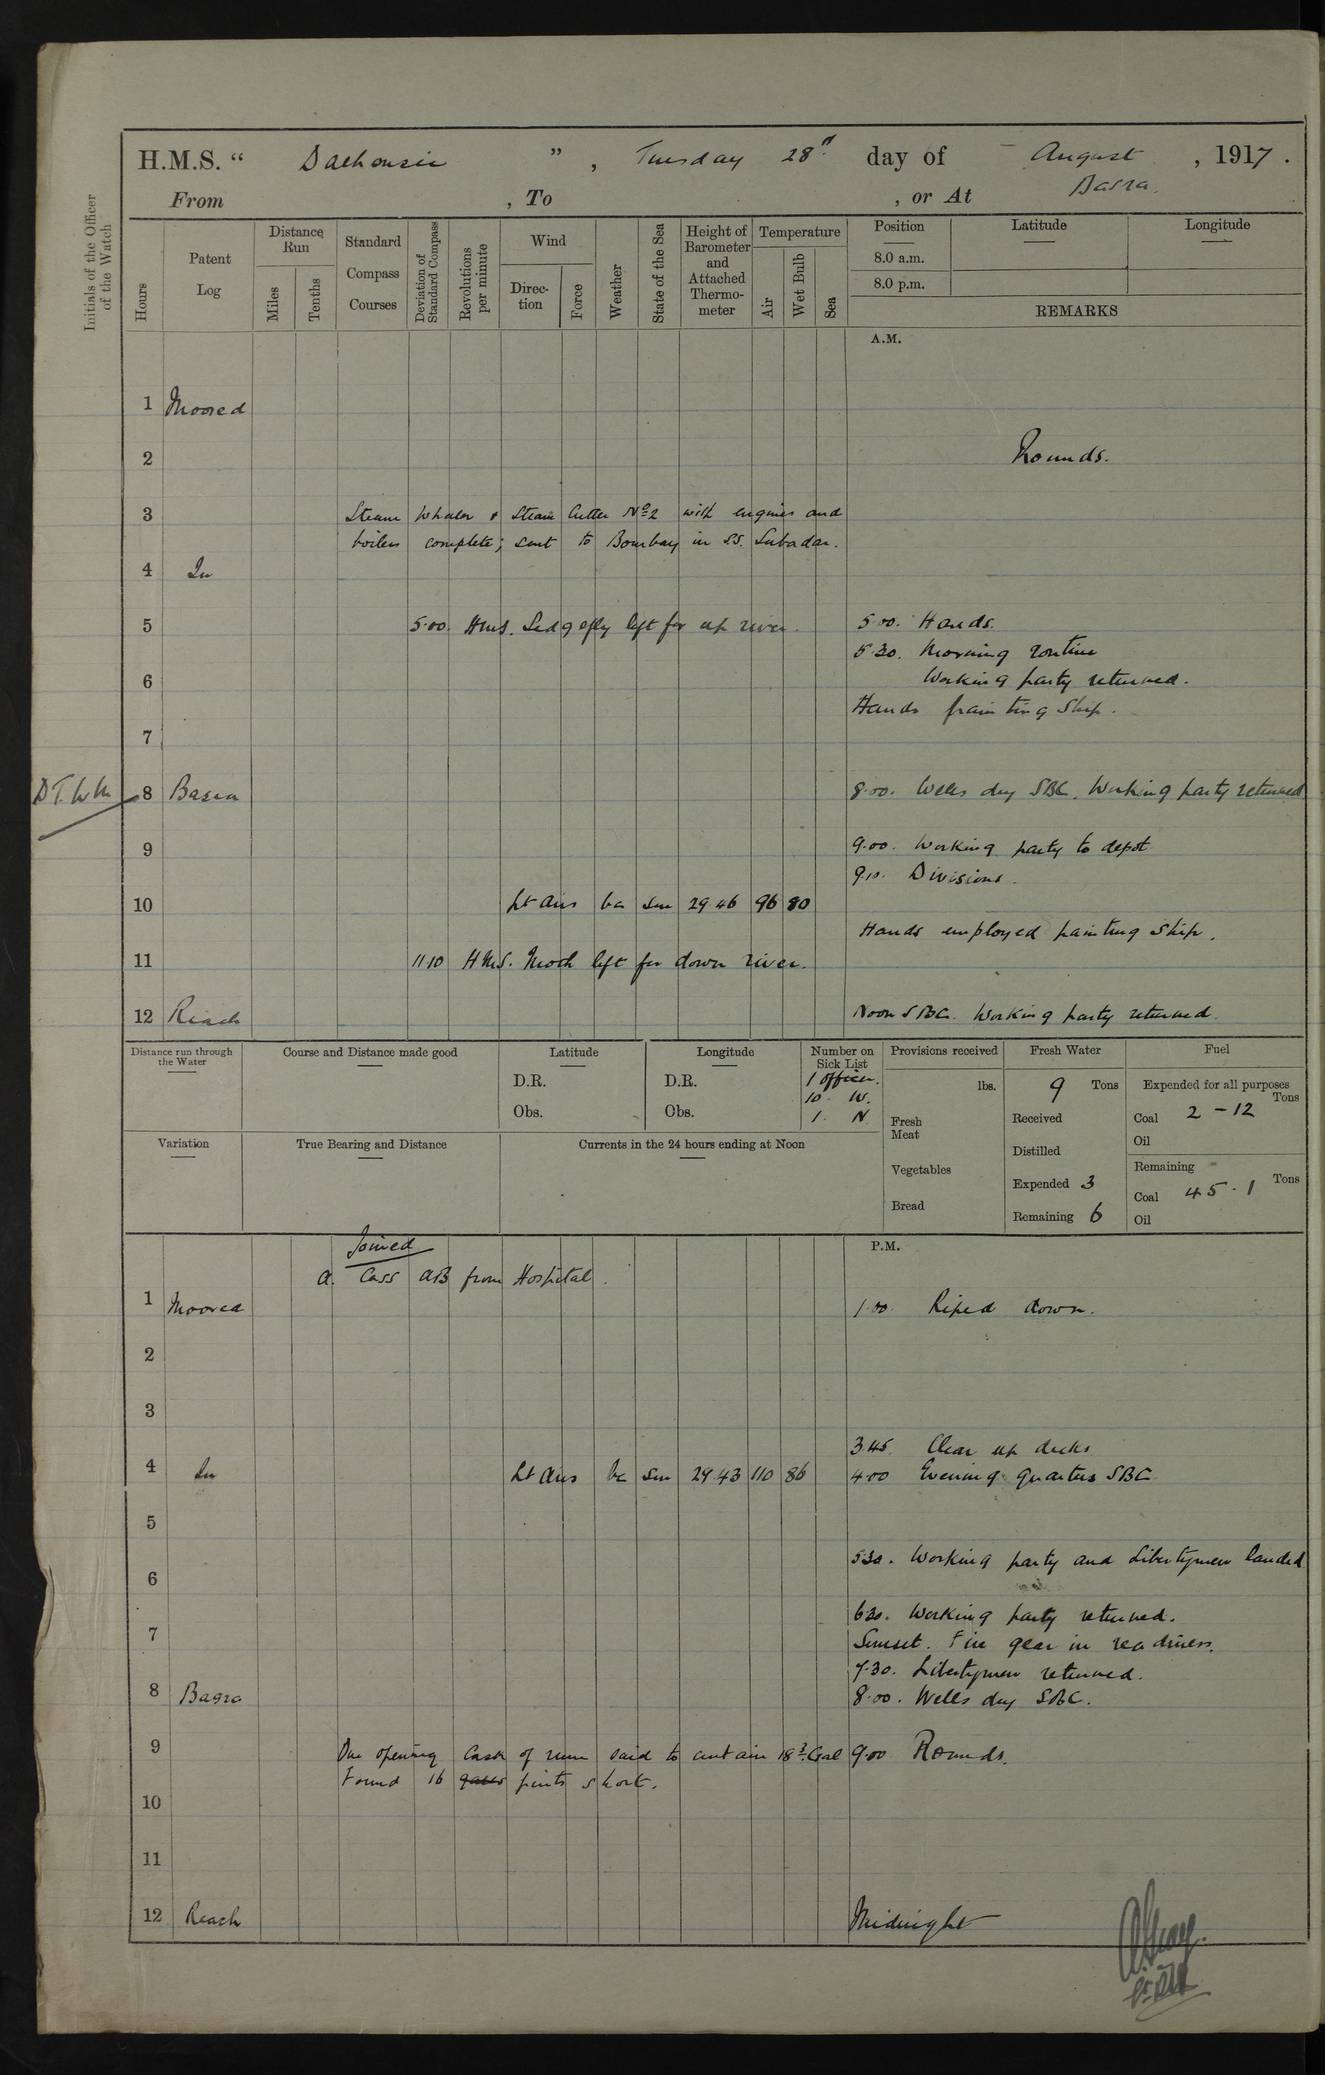 H.M.S. “ Dalhousie ” , Tuesday 28th day of August , 1917 .
From , To , or At Basra.
Initials of the Officer of the Watch
Hours
Patent Log
Distance Run
Miles
Tenths
Standard Compass Courses
Deviation of Standard Compass
Revolutions per minute
Wind
Direction
Force
Weather
State of the Sea
Height of Barometer and Attached Thermometer
Temperature
Air
Wet Bulb
Sea
Position
Latitude
Longitude
8.0 a.m.
8.0 p.m.
REMARKS
A.M.
1 Moored
2 Rounds.
3 Steam Whaler & Steam Cutter No 2 with engines and
boilers complete; sent to Bombay in SS. Subadar.
4 In
5 5.00. HMS. Sedgefly left for up river. 5.00. Hands.
5.30. Morning routine
6 Working party returned.
Hands painting Ship.
7
8 Basra 8.00. Wells dry SBC. Working party returned
9 9.00. Working party to depot
9.10. Divisions.
10 Lt airs bc sm 29.46 96 80
Hands employed painting Ship.
11 11 10 HMS. Moth left for down river.
12 Reach Noon SBC. Working party returned.
Distance run through the Water
Course and Distance made good
Latitude
D.R.
Obs.
Longitude
D.R.
Obs.
Number on Sick List
1 officer.
10. W.
1. N
Provisions received
lbs.
Fresh Meat
Vegetables
Bread
Fresh Water
9 Tons
Received
Distilled
Expended 3
Remaining 6
Fuel
Expended for all purposes
Tons
Coal 2 - 12
Oil
Remaining
Tons
Coal 45 . 1
Oil
Variation
True Bearing and Distance
Currents in the 24 hours ending at Noon
P.M.
Joined
a. Cass AB from Hospital.
1 Moored 1.00 Piped down.
2
3
3.45 Clear up decks
4 In Lt airs bc sm 29.43 110 86 4.00 Evening quarters SBC
5
5.30. Working party and Libertymen landed
6
6.30. Working party returned.
7 Sunset. Fire gear in readiness.
7.30. Libertymen returned.
8 Basra 8.00. Wells dry SBC.
9 On opening Cask of rum said to contain 18 3. Gal 9.00 Rounds.
Found 16 galls pints short.
10
11
12 Reach Midnight